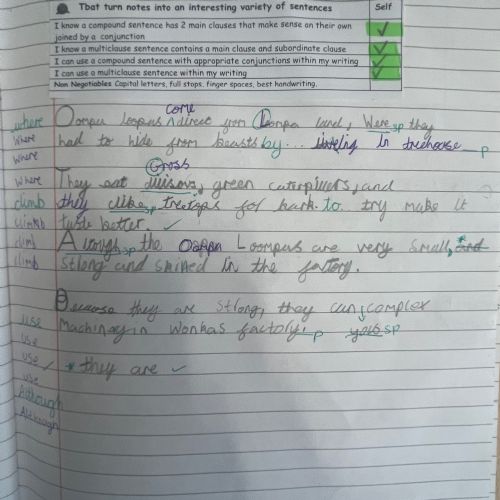 Tbat turn notes into an interesting variety of sentences Self
I know a compound sentence has 2 main clauses that make sense on their own
joined by a conjunction
I know a multiclause sentence contains a main clause and subordinate clause
I can use a compound sentence with appropriate conjunctions within my writing
I can use a multiclause sentence within my writing
Non Negotiables Capital letters, full stops, finger spaces, best handwriting.
come
where Oompa loopas direct from Loompa land, Were sp they
Where had to hide from beasts by... in treehouse p
Where
Gross
Where They eat green caterpillers, and
climb they clibe sp treetops for bark to try make it
climb taste better.
climb Alough sp the Oappa Loompas are very small, and
climb strong and skilled in the factory.
Because they are strong, they can complex
use Machinay in Wonkas factory. p yous sp
use
use * they are
use
Although
Although